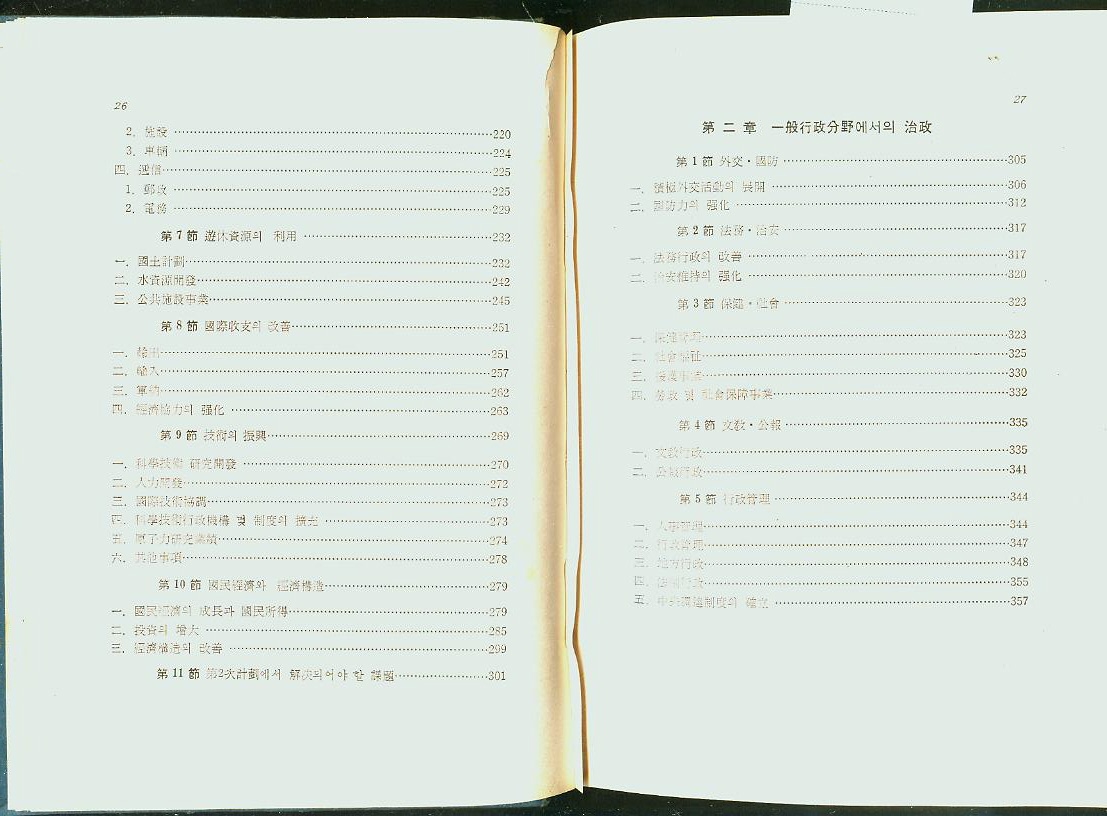 26
2. 施設 ……220
3. 車輛 ……224
四. 遞信 ……225
1. 郵政 ……225
2. 電務 ……229
第7節 遊休資源의 利用 ……232
一. 國土計劃 ……232
二. 水資源開發 ……242
三. 公共施設事業 ……245
第8節 國際收支의 改善 ……251
一. 輸出 ……251
二. 輸入 ……257
三. 軍納 ……262
四. 經濟協力의 强化 ……263
第9節 技術의 振興 ……269
一. 科學技術 研究開發 ……270
二. 人力開發 ……272
三. 國際技術協調 ……273
四. 科學技術行政機構 및 制度의 擴充 ……273
五. 原子力研究業績 ……274
六. 其他事項 ……278
第10節 國民經濟와 經濟構造 ……279
一. 國民經濟의 成長과 國民所得 ……279
二. 投資의 增大 ……285
三. 經濟構造의 改善 ……299
第11節 第2次計劃에서 解決되어야 할 課題 ……301
27
第二章 一般行政分野에서의 治政
第1節 外交・國防 ……305
一. 積極外交活動의 展開 ……306
二. 國防力의 强化 ……312
第2節 法務・治安 ……317
一. 法務行政의 改善 ……317
二. 治安維持의 强化 ……320
第3節 保健・社會 ……323
一. 保健管理 ……323
二. 社會福祉 ……325
三. 援護事業 ……330
四. 勞政 및 社會保障事業 ……332
第4節 文敎・公報 ……335
一. 文敎行政 ……335
二. 公報行政 ……341
第5節 行政管理 ……344
一. 人事管理 ……344
二. 行政管理 ……347
三. 地方行政 ……348
四. 法制行政 ……355
五. 中央調達制度의 確立 ……357